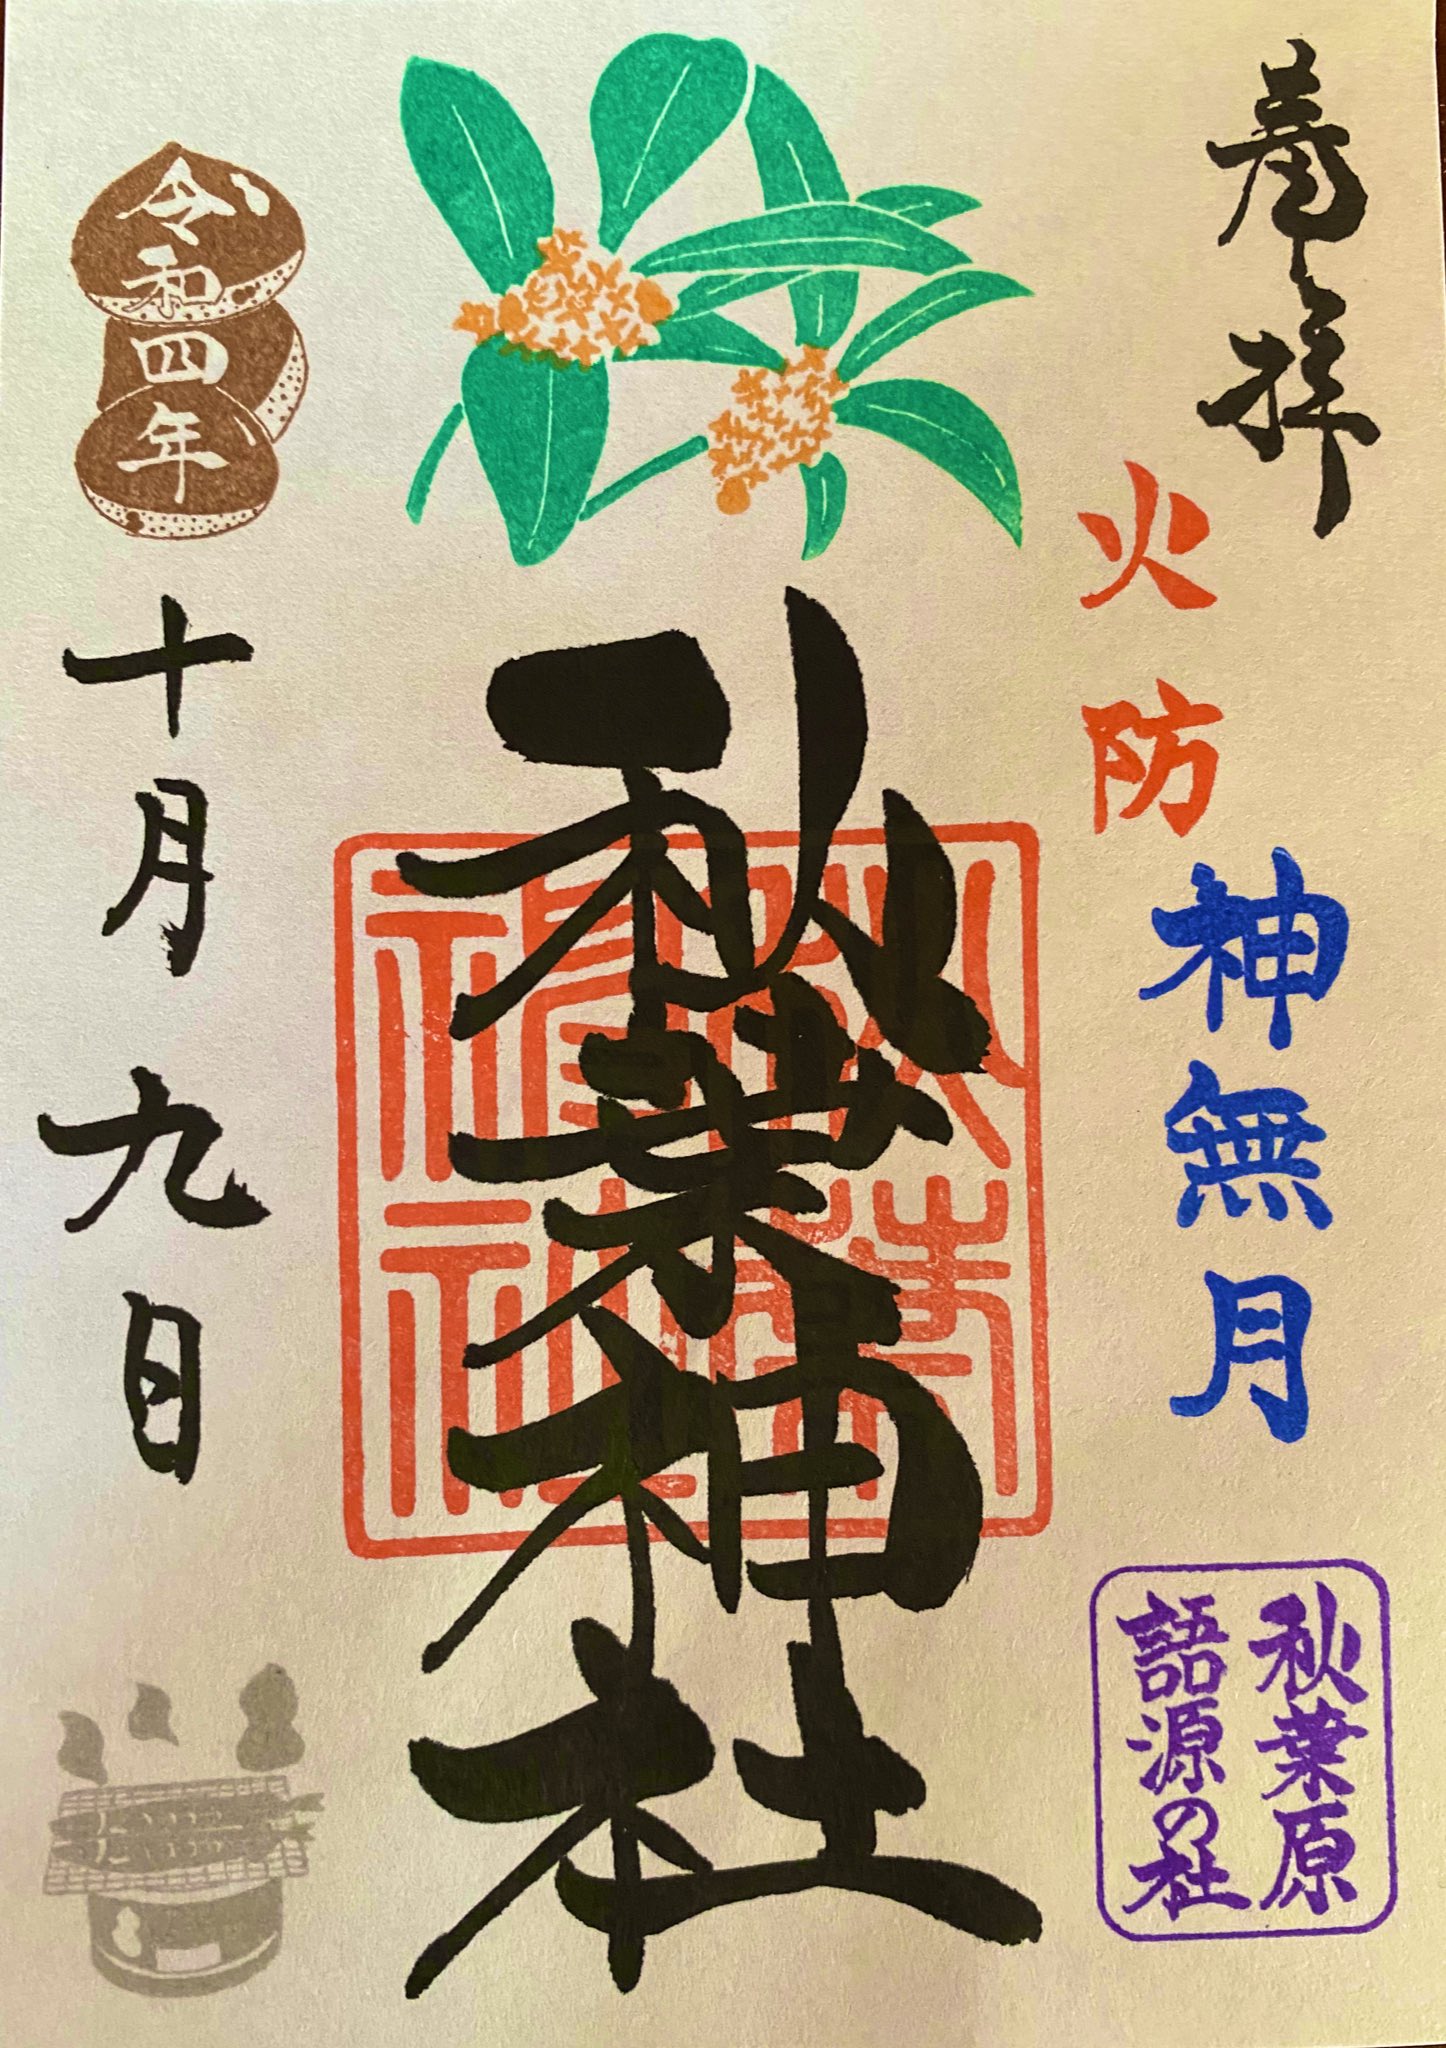 奉拝
火防
神無月
秋葉原
語源の社
秋葉神社
秋葉神社
令和四年
十月九日